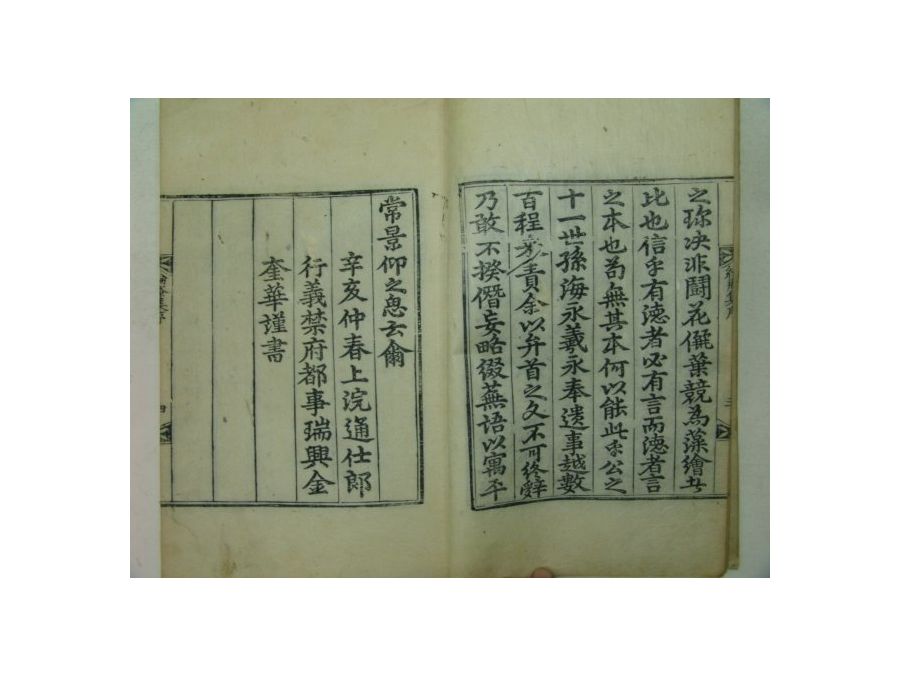 之珎决非鬪花儷葉競為藻繪者
比也信乎有德者必有言而德者言
之本也苟無其本何以能此乎公之
十一世孫海永羲永奉遺事越數
百程來責余以弁首之文不可終辭
乃敢不揆僭妄略綴蕪語以寓平
常景仰之思云爾
辛亥仲春上浣通仕郎
行義禁府都事瑞興金
奎華謹書
四